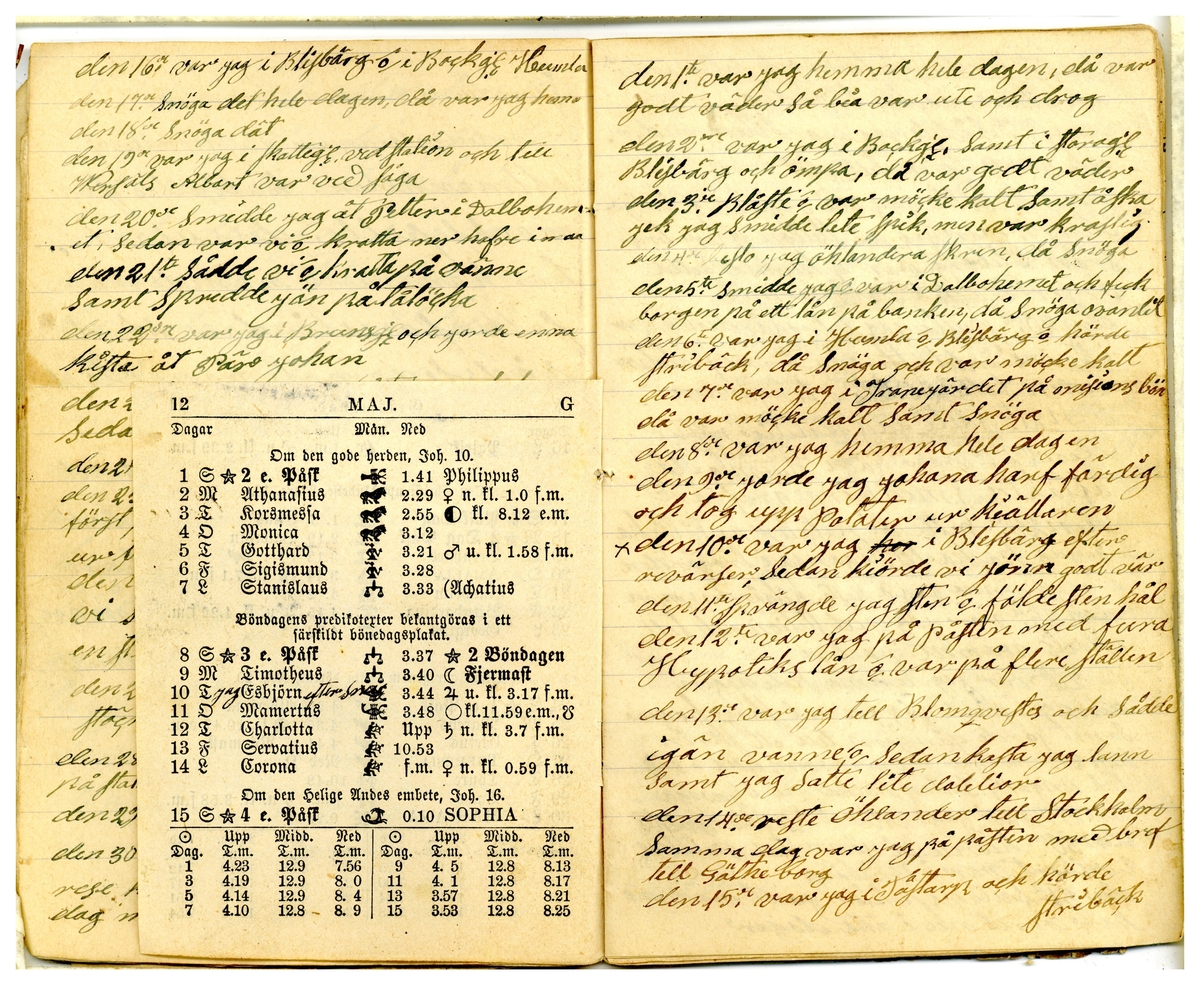 den 16de var jag i Blisbärg o i Backgg Humla
den 17de Snöga det hele dagen, då var jag hema
den 18de Snöga dåt
den 19de var jag i skattegg ved station och till
Albart var ved såga
den 20de Smidde jag åt Petter i Dalbohem-
et, Sedan var vi o kratta ner hafre i
den 21ste Sådde vi o kratta på vänne
Samt Spredde jön på talöcka
den 22dre var jag i och jorde enna
kista åt Pärs johan
den 2
Seda
den 2
den 2
först
ur
den
vi s
en st
den 2
den 2
på stat
den 29
den 30
rese
dag m
12 MAJ. G
Dagar Mån. Ned
Om den gode herden, Joh. 10.
1 S ★ 2 e. Påsk 1.41 Philippus
2 M Athanasius 2.29 ♀ n. kl. 1.0 f.m.
3 T Korsmessa 2.55 ◐ kl. 8.12 e.m.
4 O Monica 3.12
5 T Gotthard 3.21 ♂ u. kl. 1.58 f.m.
6 F Sigismund 3.28
7 L Stanislaus 3.33 (Achatius
Böndagens predikotexter bekantgöras i ett
särskildt bönedagsplakat.
8 S ★ 3 e. Påsk 3.37 ★ 2 Böndagen
9 M Timotheus 3.40 ☾ Fjermast
10 T jag Esbjörn efter 3.44 ♃ u. kl. 3.17 f.m.
11 O Mamertus 3.48 ○ kl. 11.59 e.m., ☋
12 T Charlotta Upp ♄ n. kl. 3.7 f.m.
13 F Servatius 10.53
14 L Corona f.m. ♀ n. kl. 0.59 f.m.
Om den Helige Andes embete, Joh. 16.
15 S ★ 4 e. Påsk 0.10 SOPHIA
☉ Upp Midd. Ned ☉ Upp Midd. Ned
Dag. T.m. T.m. T.m. Dag. T.m. T.m. T.m.
1 4.23 12.9 7.56 9 4. 5 12.8 8.13
3 4.19 12.9 8. 0 11 4. 1 12.8 8.17
5 4.14 12.9 8. 4 13 3.57 12.8 8.21
7 4.10 12.8 8. 9 15 3.53 12.8 8.25
den 1ste var jag hemma hele dagen, då var
godt väder så bia var ute och drog
den 2dre var jag i Backgg, Samt i storagg
Blisbärg och ömsa, då var godt väder
den 3de Blåste o var möcke kalt Samt åska
jek jag Smidde lete spik, men var kraslig
den 4de jag öhlandera skren, då Snöga
den 5te Smidde jag o var i Dalbohemet och feck
borgen på ett lån på banken, då Snöga ovanlit
den 6te var jag i Humla o Blisbärg o hörde
stribäck, då Snöga och var möcke kalt
den 7de var jag i Tranejärdet på misions bön
då var möcke kalt Samt Snöga
den 8de var jag hemma hele dagen
den 9de jorde jag johana harf färdig
och tog upp Potater ur kiällaren
x den 10de var jag i Blisbärg efter
revärser, Sedan kiörde vi jönn godt vär
den 11te Sprängde jag sten o földe sten hål
den 12te var jag på Påsten med fura
Hypoteks lån o var på flere ställen
den 13de var jag tell Blomqvistes och Sådde
igän vanne o Sedan kasta jag lann
Samt jag Satte lite
den 14de reste Öhlander tell Stockholm
Samma dag var jag på påsten med bref
tell Götheborg
den 15de var jag i och hörde
stribäck